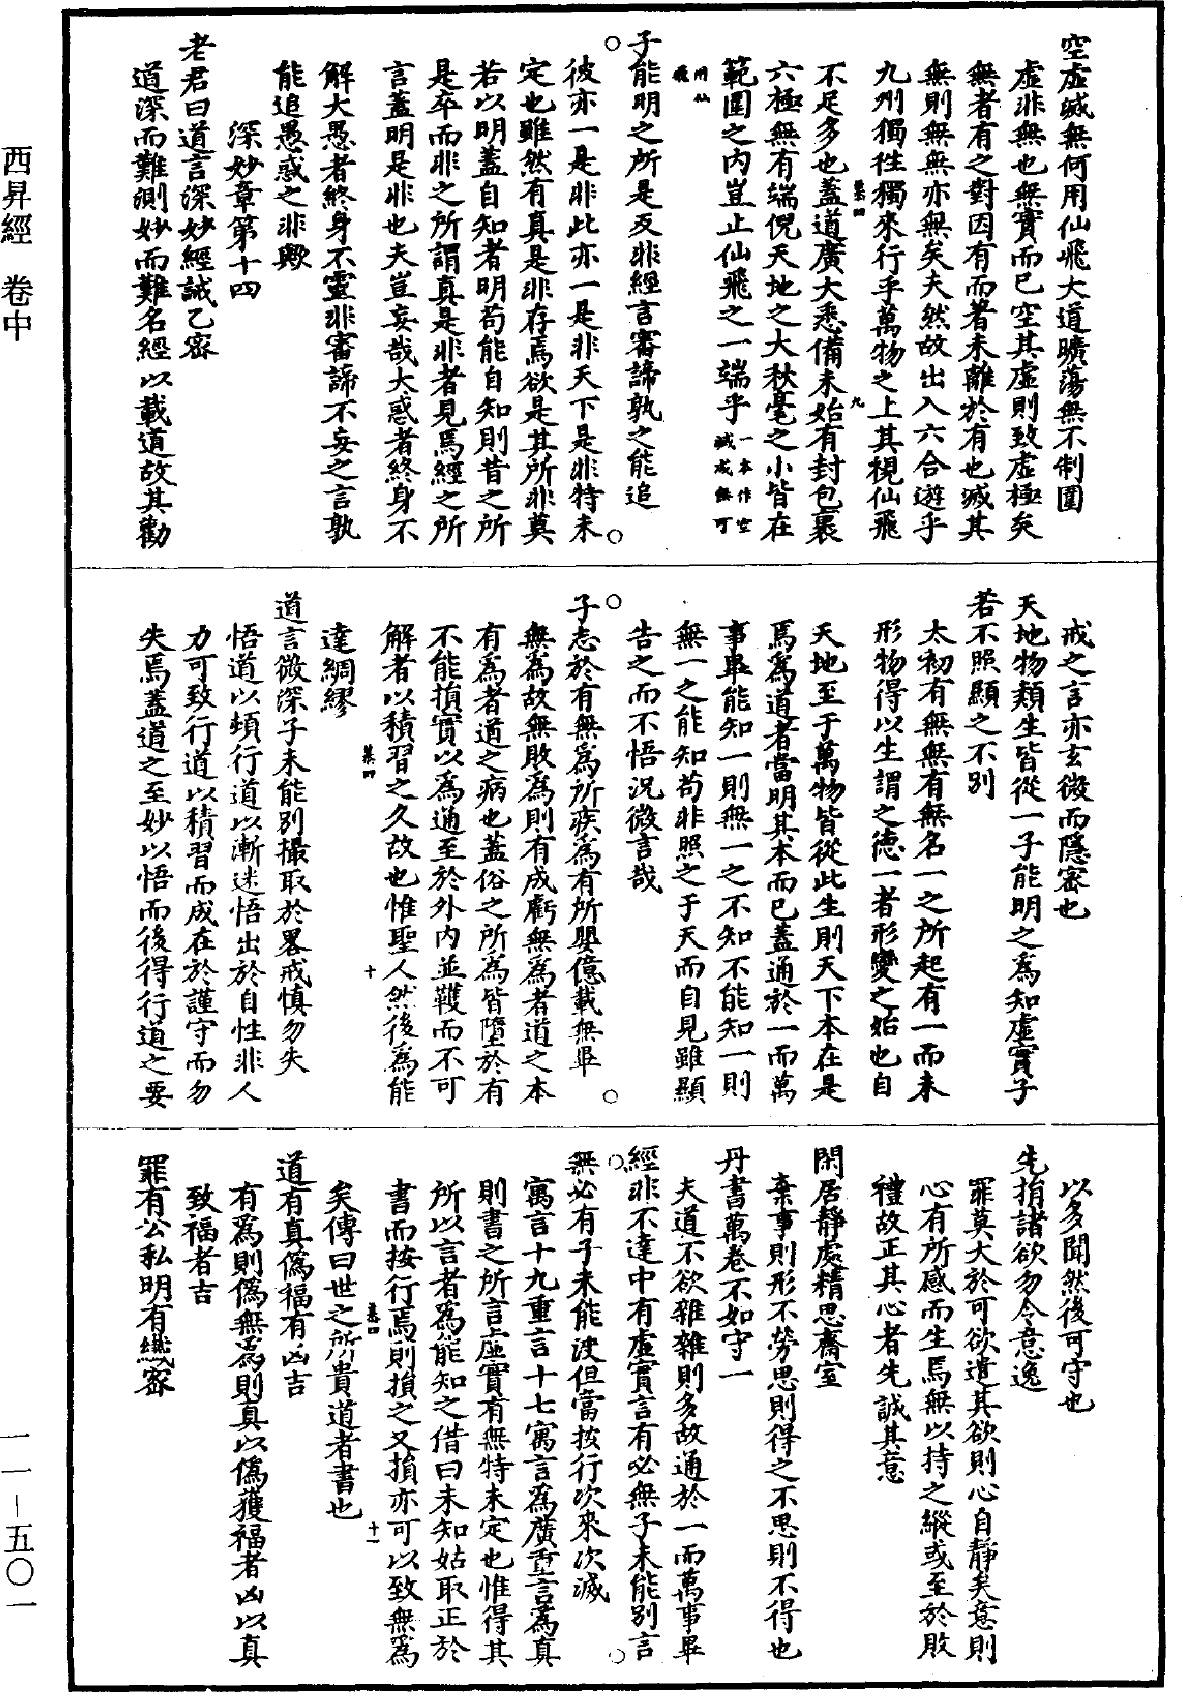 空虛滅無何用仙飛大道曠蕩無不制圍
虛非無也無實而已空其虛則致虛極矣
無者有之對因有而著未離於有也滅其
無則無無亦無矣夫然故出入六合遊乎
九州獨往獨來行乎萬物之上其視仙飛
不足多也蓋道廣大悉備未始有封包裹
六極無有端倪天地之大秋毫之小皆在
範圍之內豈止仙飛之一端乎一本作空滅成無可用仙飛
子能明之所是反非經言審諦孰之能追
彼亦一是非此亦一是非天下是非特未
定也雖然有真是非存焉欲是其所非莫
若以明蓋自知者明苟能自知則昔之所
是卒而非之所謂真是非者見焉經之所
言蓋明是非也夫豈妄哉大惑者終身不
解大愚者終身不靈非審諦不妄之言孰
能追愚惑之非歟
深妙章第十四
老君曰道言深妙經誡乙密
道深而難測妙而難名經以載道故其勸
戒之言亦玄微而隱密也
天地物類生皆從一子能明之為知虛實子
若不照顯之不別
太初有無無有無名一之所起有一而未
形物得以生謂之德一者形變之始也自
天地至于萬物皆從此生則天下本在是
焉為道者當明其本而已蓋通於一而萬
事畢能知一則無一之不知不能知一則
無一之能知苟非照之于天而自見雖顯
告之而不悟況微言哉
子志於有無為所疾為有所嬰億載無畢
無為故無敗為則有成虧無為者道之本
有為者道之病也蓋俗之所為皆墮於有
不能損實以為通至於外內並韄而不可
解者以積習之久故也惟聖人然後為能
達綢繆
道言微深子未能別撮取於畧戒慎勿失
悟道以頓行道以漸迷悟出於自性非人
力可致行道以積習而成在於謹守而勿
失焉蓋道之至妙以悟而後得行道之要
以多聞然後可守也
先捐諸欲勿令意逸
罪莫大於可欲遣其欲則心自靜矣意則
心有所感而生焉無以持之縱或至於敗
禮故正其心者先誠其意
閑居靜處精思齋室
棄事則形不勞思則得之不思則不得也
丹書萬卷不如守一
夫道不欲雜雜則多故通於一而萬事畢
經非不達中有虛實言有必無子未能別言
無必有子未能決但當按行次來次滅
寓言十九重言十七寓言為廣重言為真
則書之所言虛實有無特未定也惟得其
所以言者為能知之借曰未知姑取正於
書而按行焉則損之又損亦可以致無為
矣傳曰世之所貴道者書也
道有真偽福有凶吉
有為則偽無為則真以偽獲福者凶以真
致福者吉
罪有公私明有纖密
西昇經 卷中
一一－五〇一